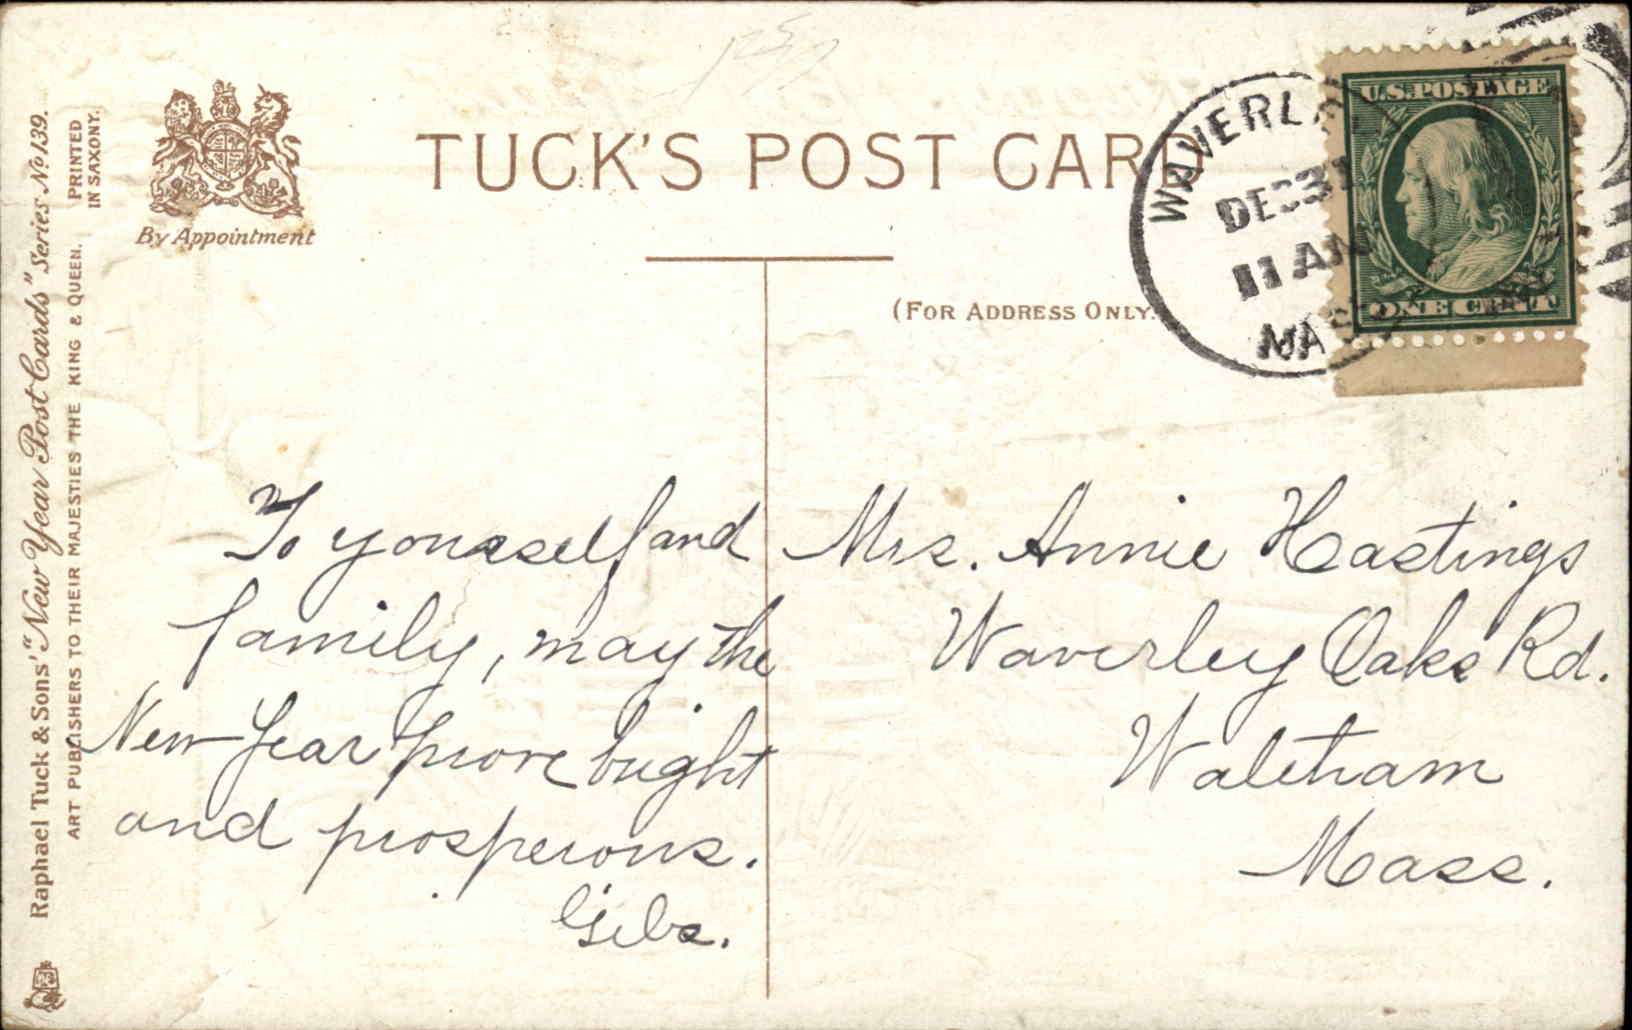 TUCK'S POST CARD
By Appointment
(FOR ADDRESS ONLY.
Raphael Tuck & Sons' "New Year Post Cards" Series No 139.
ART PUBLISHERS TO THEIR MAJESTIES THE KING & QUEEN.
PRINTED
IN SAXONY.
WAVERLEY
DEC 31
11 AM
MASS
U.S. POSTAGE
ONE CENT
To yourself and
family, may the
New Year prove bright
and prosperous.
Mrs. Annie Hastings
Waverley Oaks Rd.
Waltham
Mass.